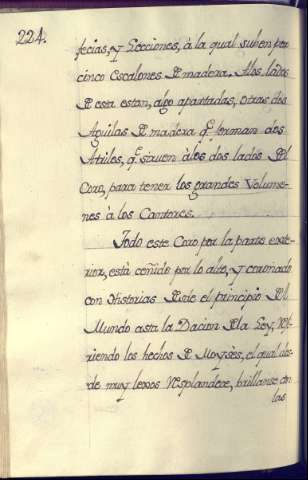 224.
fecias, y Lecciones, à la qual suben por
cinco Escalones de madera. A los lados
de esta estan, algo apartadas, otras dos
Aguilas de madera q.e forman dos
Atriles, q.e sirven à los dos lados del
Coro, para tener los grandes Volume-
nes à los Cantores.
Todo este Coro por la parte exte-
rior, està ceñido por lo alto, y coronado
con Historias desde el principio del
Mundo asta la Dacion de la Ley, refi-
riendo los hechos de Moysès, el qual des-
de muy lexos resplandece, brillanse con
las